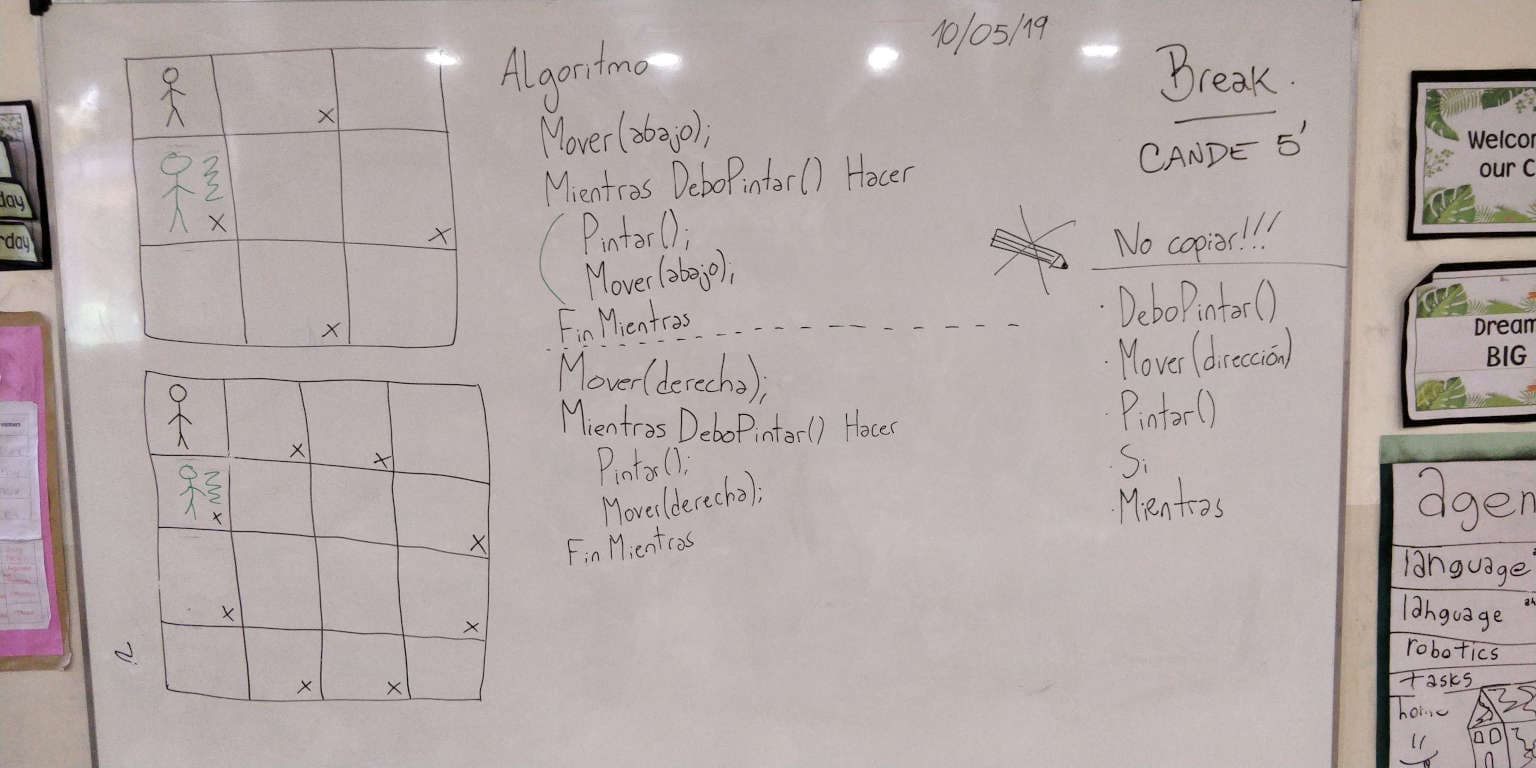 10/05/19
Algoritmo
Mover(abajo);
Mientras DeboPintar() Hacer
Pintar();
Mover(abajo);
Fin Mientras
Mover(derecha);
Mientras DeboPintar() Hacer
Pintar();
Mover(derecha);
Fin Mientras
Break.
CANDE 5'
No copiar!!!
· DeboPintar()
· Mover(dirección)
· Pintar()
· Si
· Mientras
x
x
x
x
x
x
x
x
x
x
x
x
x
day
rday
Welco
our C
Dream
BIG
agen
language
language
robotics
tasks
home